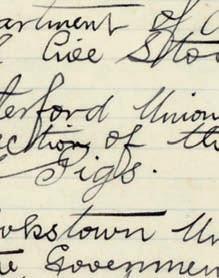 artment of
Live Stoc
terford Union
ection of th
Pigs.
okstown Un
te Governmen